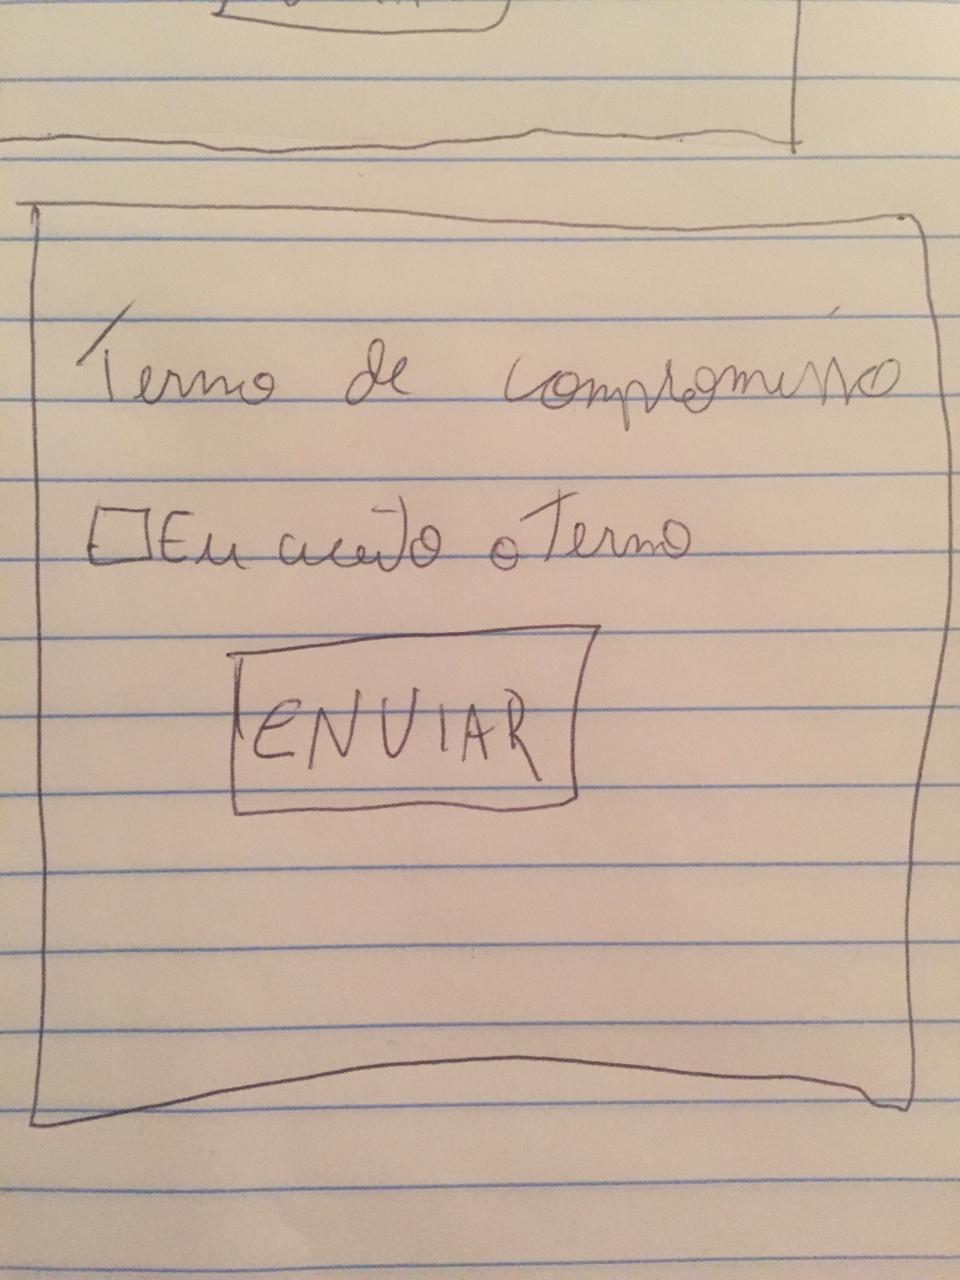 Termo de compromisso
Eu aceito o Termo
ENVIAR